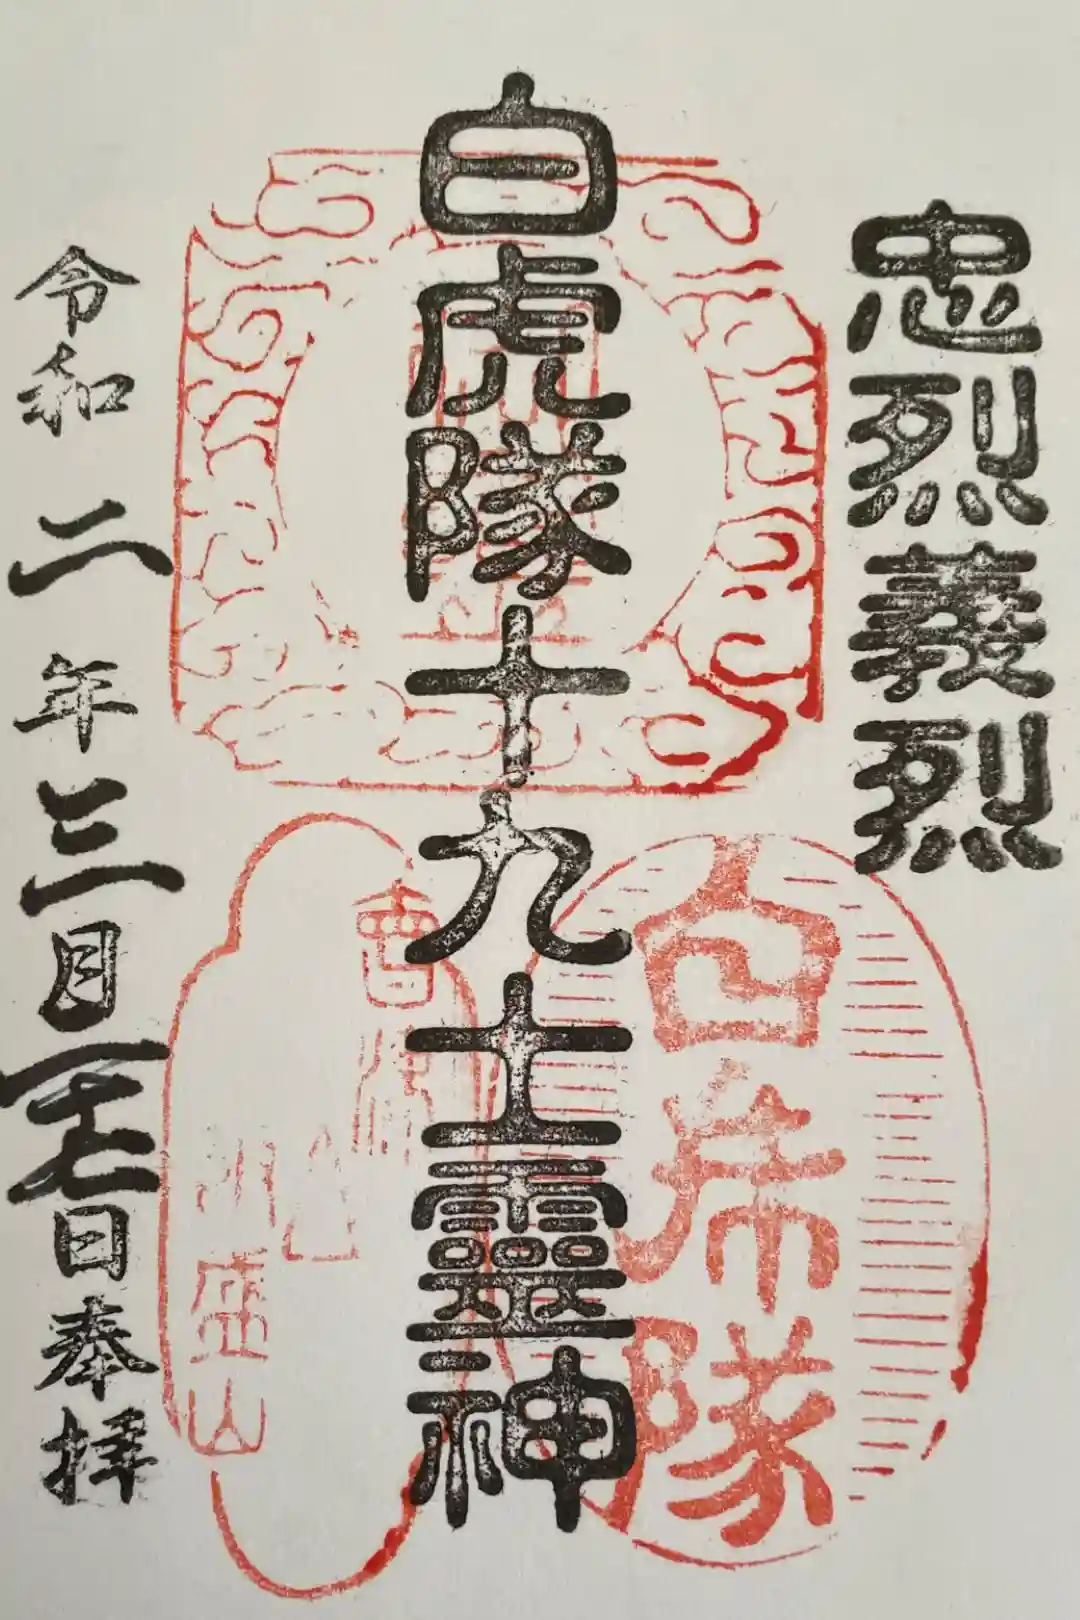 忠烈義烈
白虎隊十九士靈神
白虎隊
會
盛山
令和二年三月二十七日奉拝